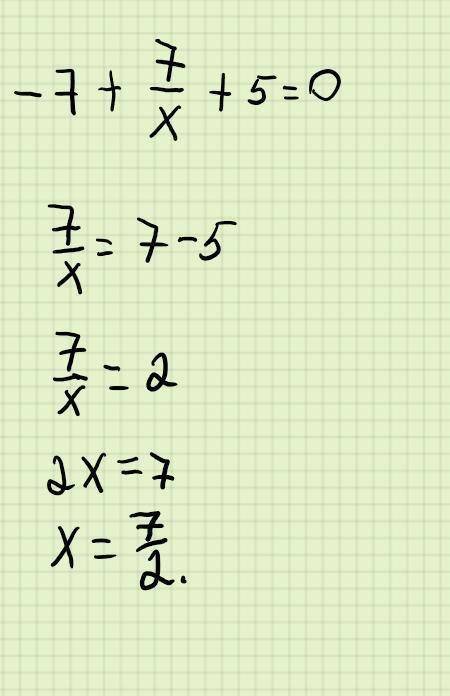 -7 + 7/x + 5 = 0
7/x = 7 - 5
7/x = 2
2x = 7
x = 7/2.